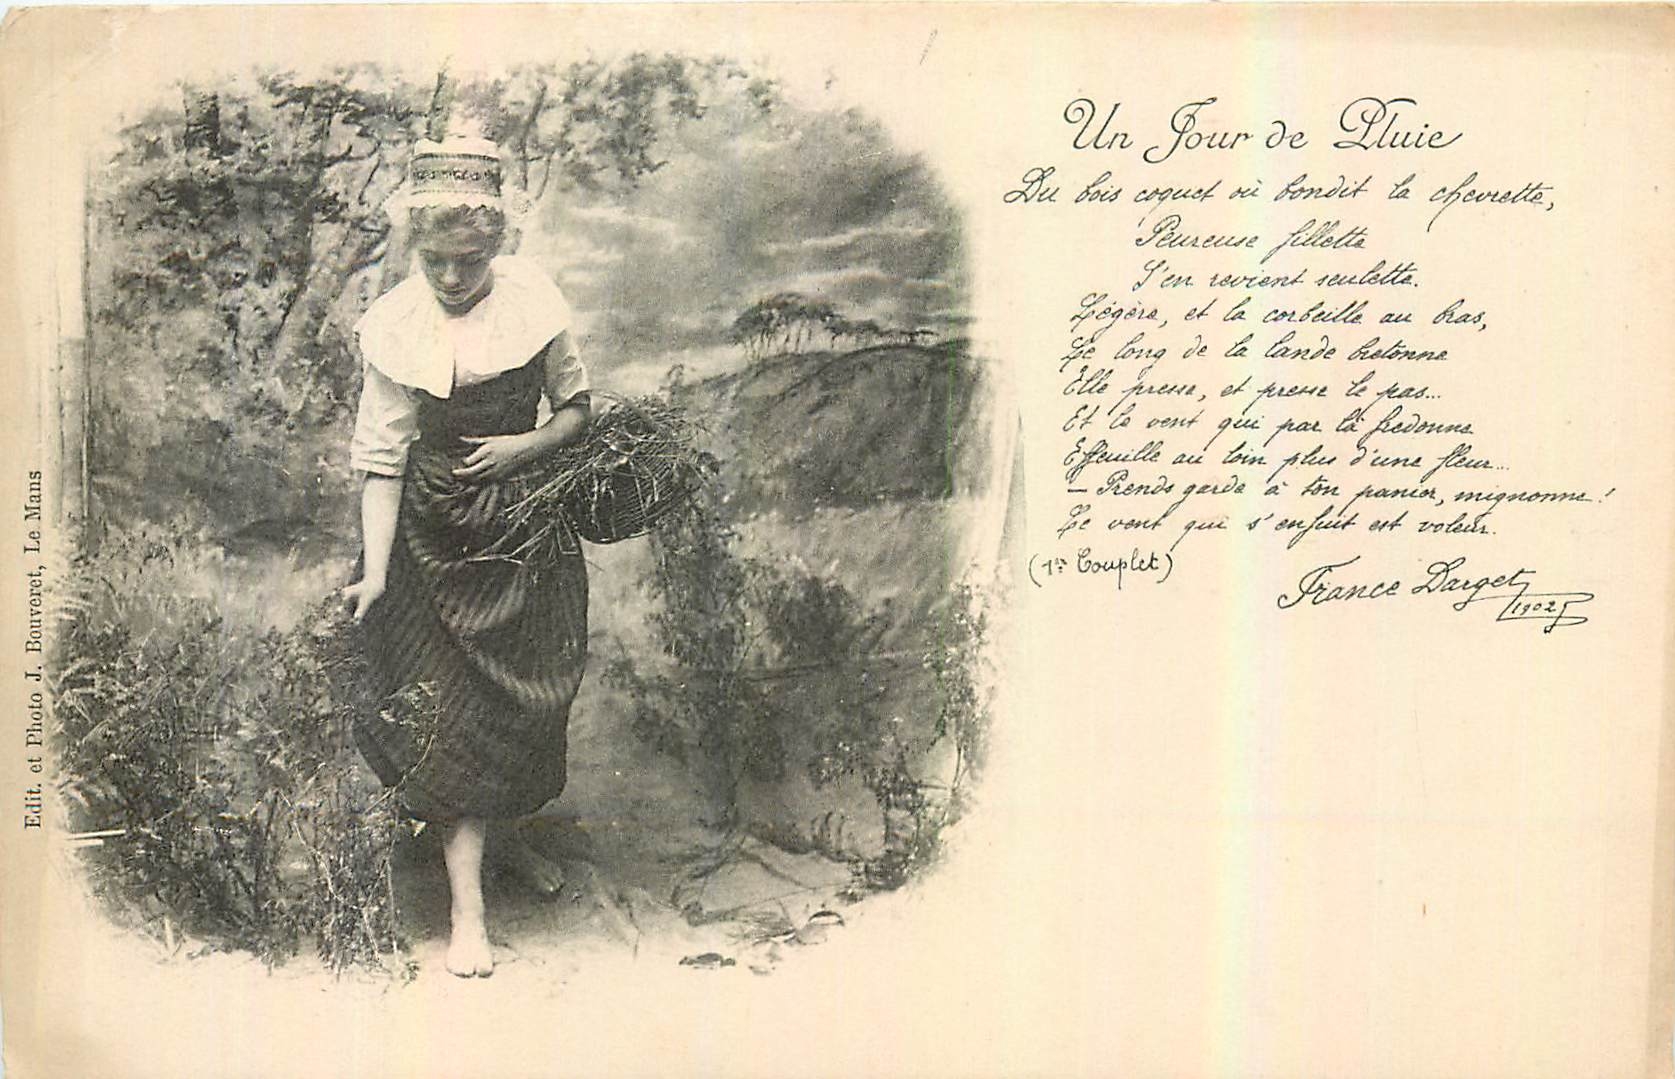 Un Jour de Pluie
Du bois coquet où bondit la chevrette,
Peureuse fillette
S'en revient seulette.
Légère, et la corbeille au bras,
Le long de la lande bretonne
Elle presse, et presse le pas...
Et le vent qui par là fredonne
Effeuille au loin plus d'une fleur...
— Prends garde à ton panier, mignonne !
Le vent qui s'enfuit est voleur.
(1er Couplet)
France Darget
1902
Edit. et Photo J. Bouveret, Le Mans